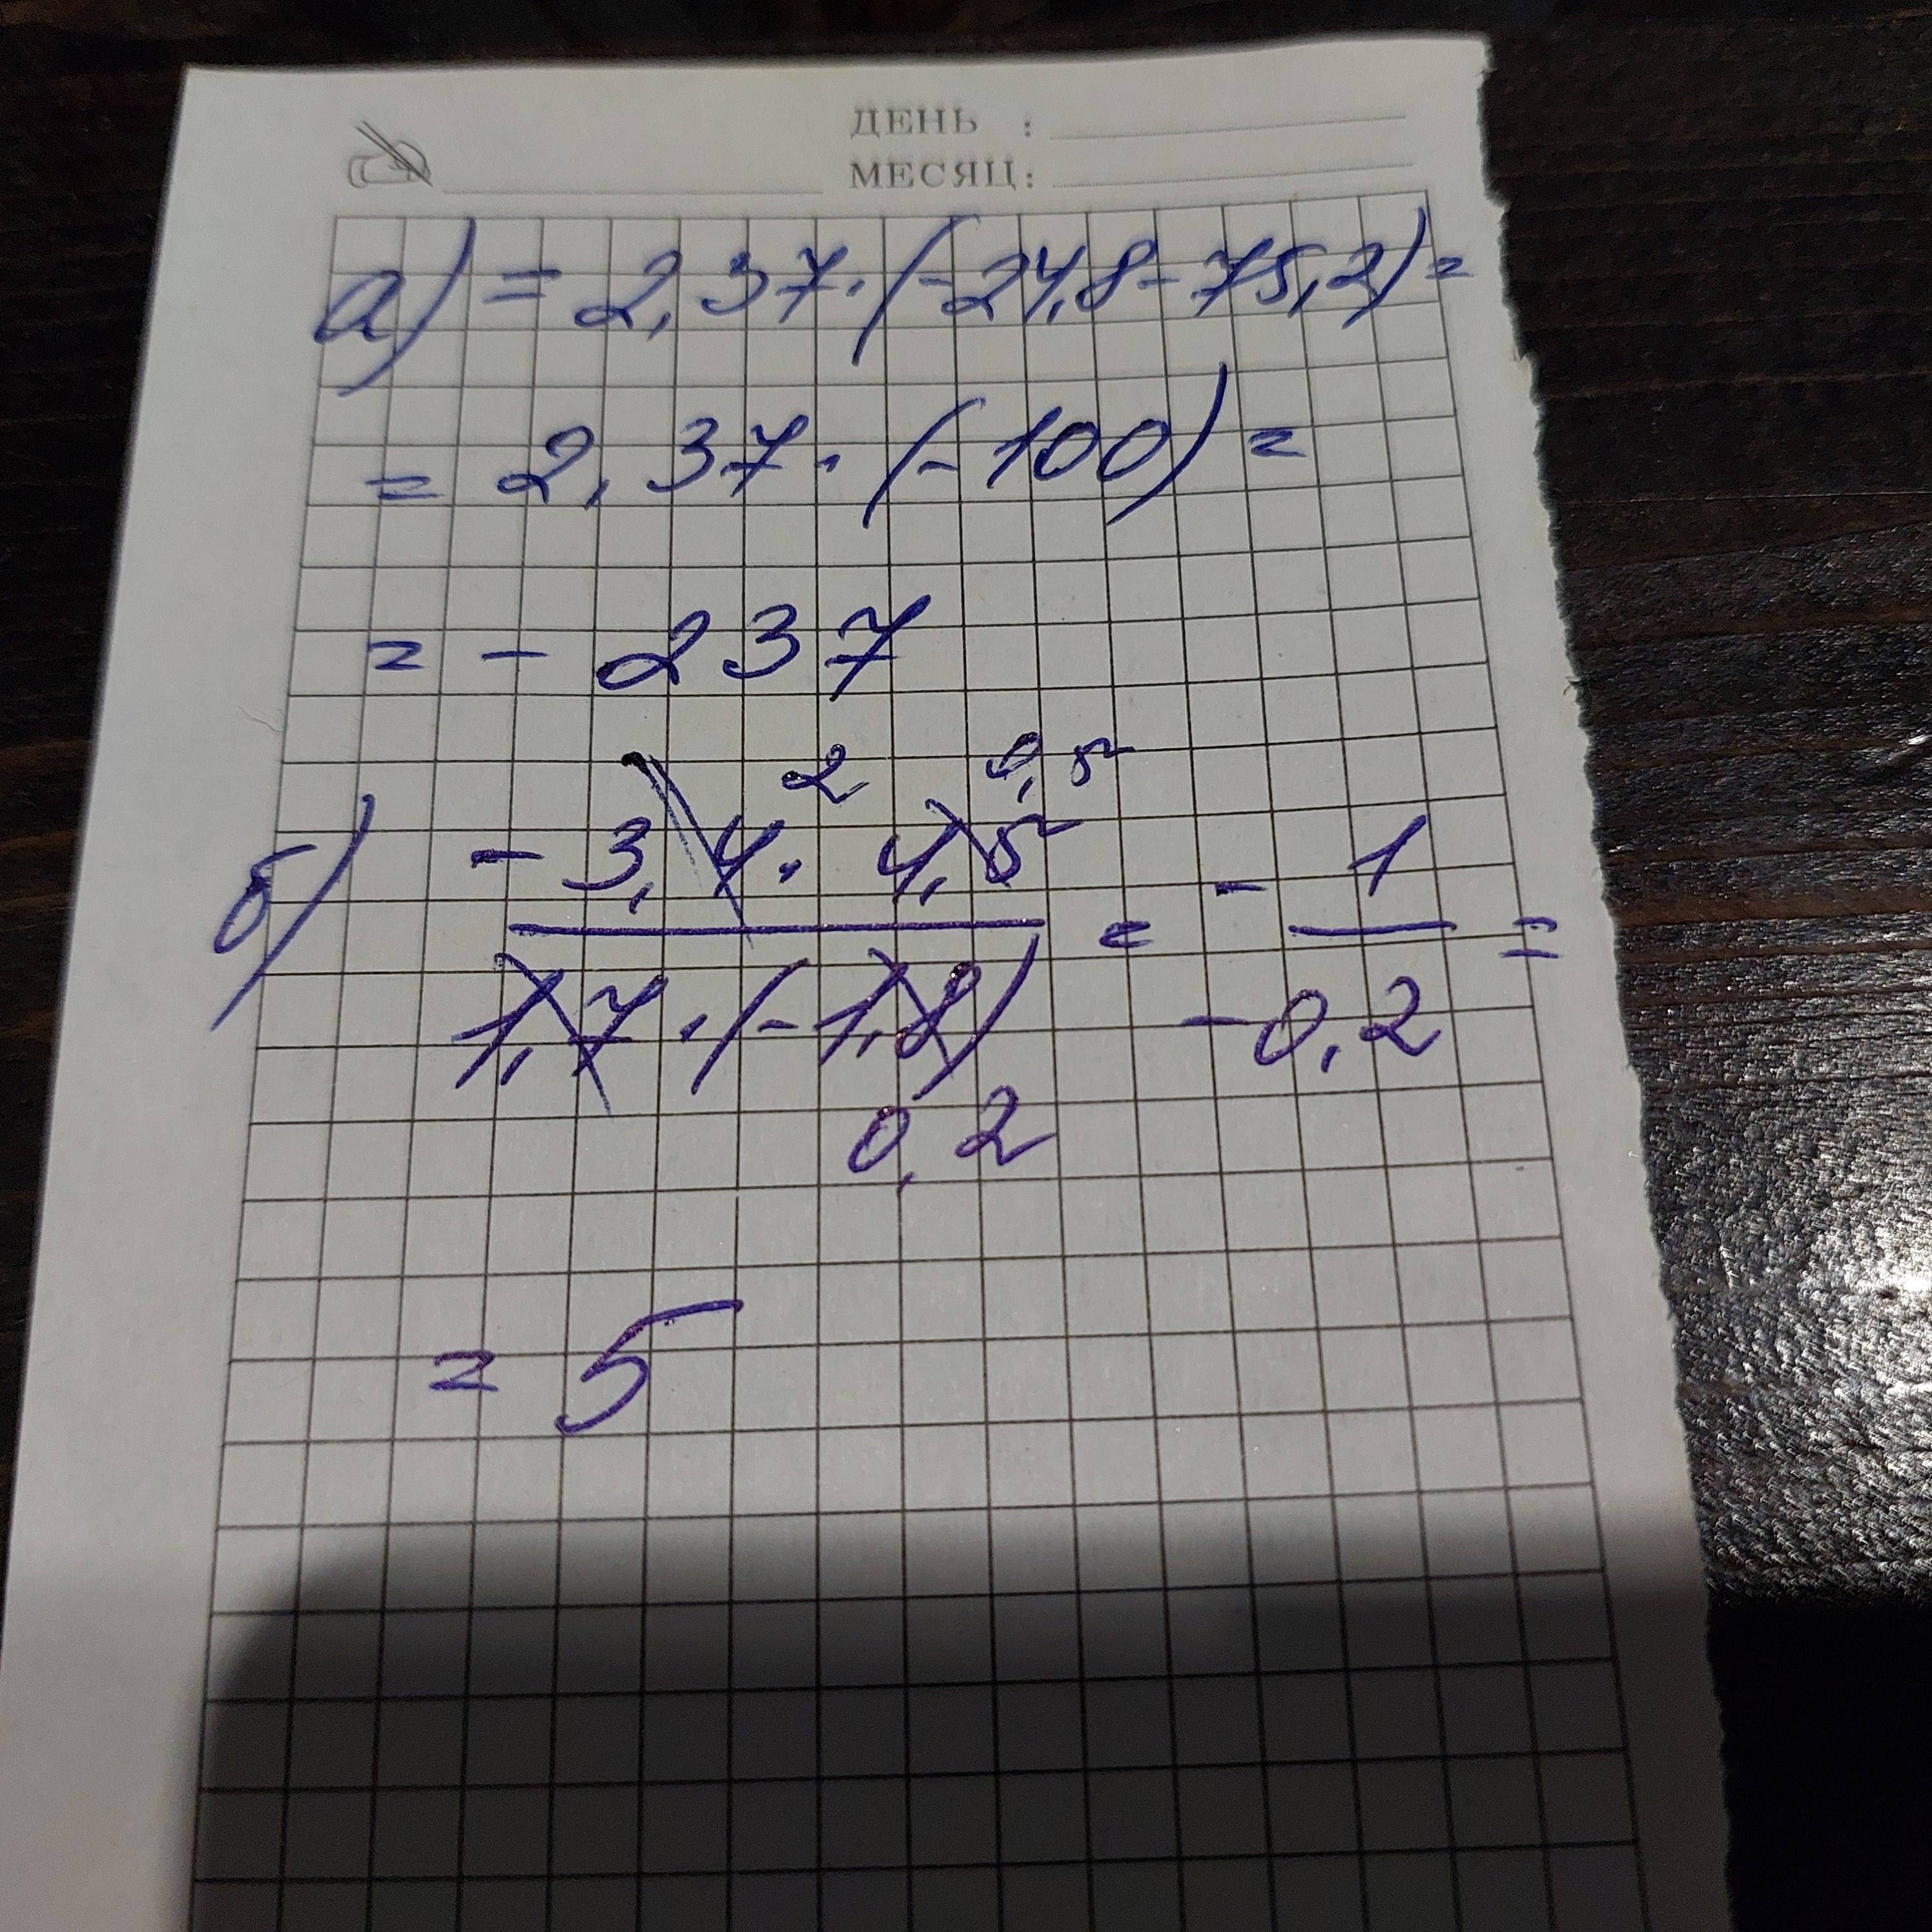 ДЕНЬ :
МЕСЯЦ:
а) = 2,37·(-24,8-75,2)=
= 2,37·(-100)=
= - 237
2 0,5
б) - 3,4 · 4,5 / 1,7 · (-1,8) = - 1 / -0,2 =
0,2
= 5